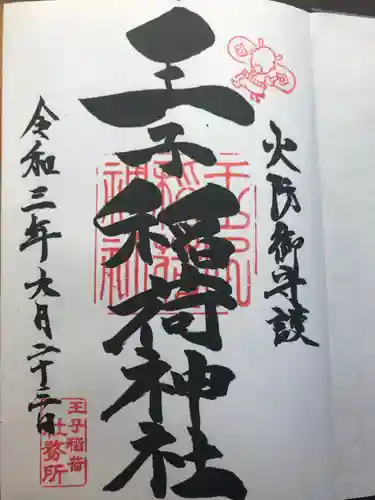 火防御守護
王子稲荷神社
王子稲荷神社
令和三年九月二十二日
王子稲荷
社務所